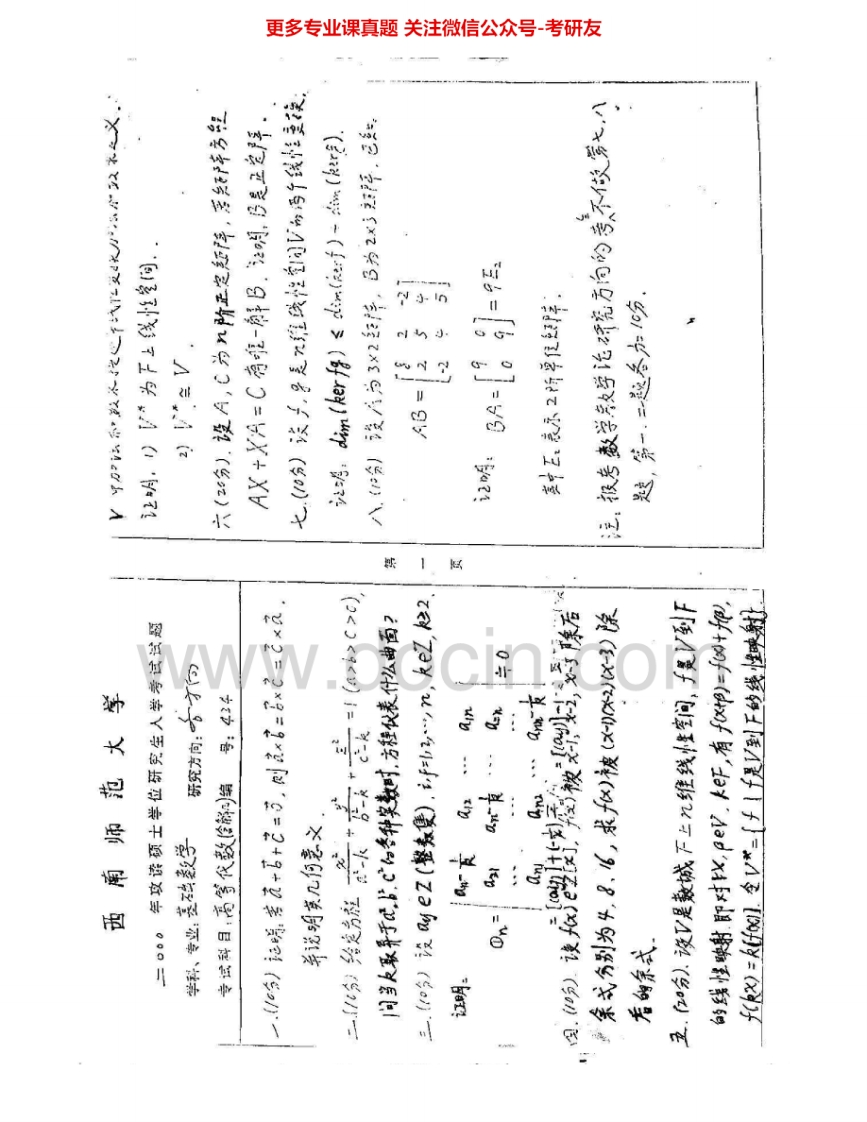 更多专业课真题 关注微信公众号-考研友
西南师范大学
二000 年攻读硕士学位研究生入学考试试题
学科、专业:基础数学 研究方向:各方向
考试科目:高等代数(含解几) 编号:424
一.(10分) 证明:若a⃗+b⃗+c⃗=0⃗, 则a⃗×b⃗=b⃗×c⃗=c⃗×a⃗.
并说明其几何意义.
二.(10分) 给定方程 x²/(a²-k) + y²/(b²-k) + z²/(c²-k) = 1 (a>b>c>0),
问当k取异于a²,b²,c²的各种实数时,方程代表什么曲面?
三.(10分) 设 aᵢⱼ∈Z(整数集), i,j=1,2,…,n, k∈Z, k≥2.
证明:
Dₙ = | a₁₁-1/k a₁₂ … a₁ₙ |
| a₂₁ a₂₂-1/k … a₂ₙ | ≠0
| … … … … |
| aₙ₁ aₙ₂ … aₙₙ-1/k |
四.(10分). 设f(x)∈Z[x], f(x)被x-1, x-2, x-3除后
余式分别为4, 8, 16, 求f(x)被(x-1)(x-2)(x-3)除
后的余式.
五.(20分). 设V是数域F上n维线性空间, f是V到F
的线性映射.即对∀α,β∈V, k∈F, 有f(α+β)=f(α)+f(β),
f(kα)=k(f(α)). 令V*={f | f是V到F的线性映射}
第一页
证明. 1) V*为F上线性空间.
2) V*≅V.
六(20分). 设A, C为n阶正定矩阵, 若矩阵方程
AX+XA=C有唯一解B. 证明, B是正定阵.
七.(10分) 设f, g是n维线性空间V的两个线性变换.
证明: dim(ker fg) ≤ dim(ker f) + dim(ker g).
八.(10分) 设A为3×2矩阵, B为2×3矩阵, 已知:
AB = [ 8 2 -2 ]
[ 2 5 4 ]
[ -2 4 5 ]
证明: BA = [ 9 0 ] = 9E₂
[ 0 9 ]
其中E₂表示2阶单位矩阵.
注:报考数学教学论研究方向的考生不做第七、八
题, 第一.二题各加10分.